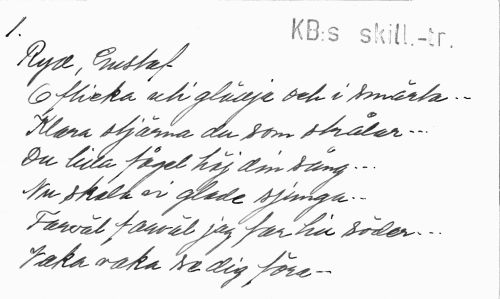 1.
KB:s skill.-tr.
Ryd, Gustaf
O flicka uti glädje och i smärta --
Klara stjärna du som strålar ---
Du lilla fågel höj din sång ---
Nu skola vi glade sjunga --
Farväl farväl jag far hu söder ---
Vaka vaka se dig före --